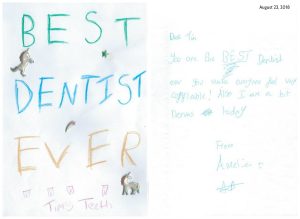 BEST
DENTIST
EVER
Tims Teeth
August 23, 2018
Dear Tim
You are the BEST Dentist
ever you make everyone feel very
comfortable! Also I am a bit
nervous today!
From
Amelia